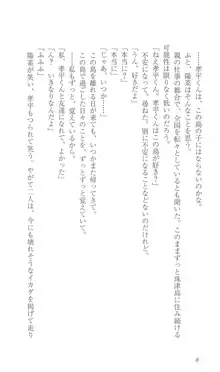 ……孝平くんは、この島の子にはならないのかな。
親の仕事の都合で、全国を転々としている。このままずっと珠津島に住み続ける
可能性は限りなく低いのだろう。
「ねえ孝平くん、孝平くんはこの島が好き？」
不安になって、尋ねた。別に不安になることなどないのだけれど。
「うん、好きだよ」
「本当に？」
「本当に」
「じゃあ、いつか……」
この島を離れる日が来ても、いつかまた帰ってきて。
この島で過ごした日々のことを、ずっとずっと覚えていて。
――私もずっと、ずっと覚えているから。
「私、孝平くんと友達になれて、よかった」
「ん？　いきなりなんだよ」
「ふふふ」
陽菜が笑い、孝平もつられて笑う。やがて二人は、今にも壊れそうなイカダを掲げて走り
8